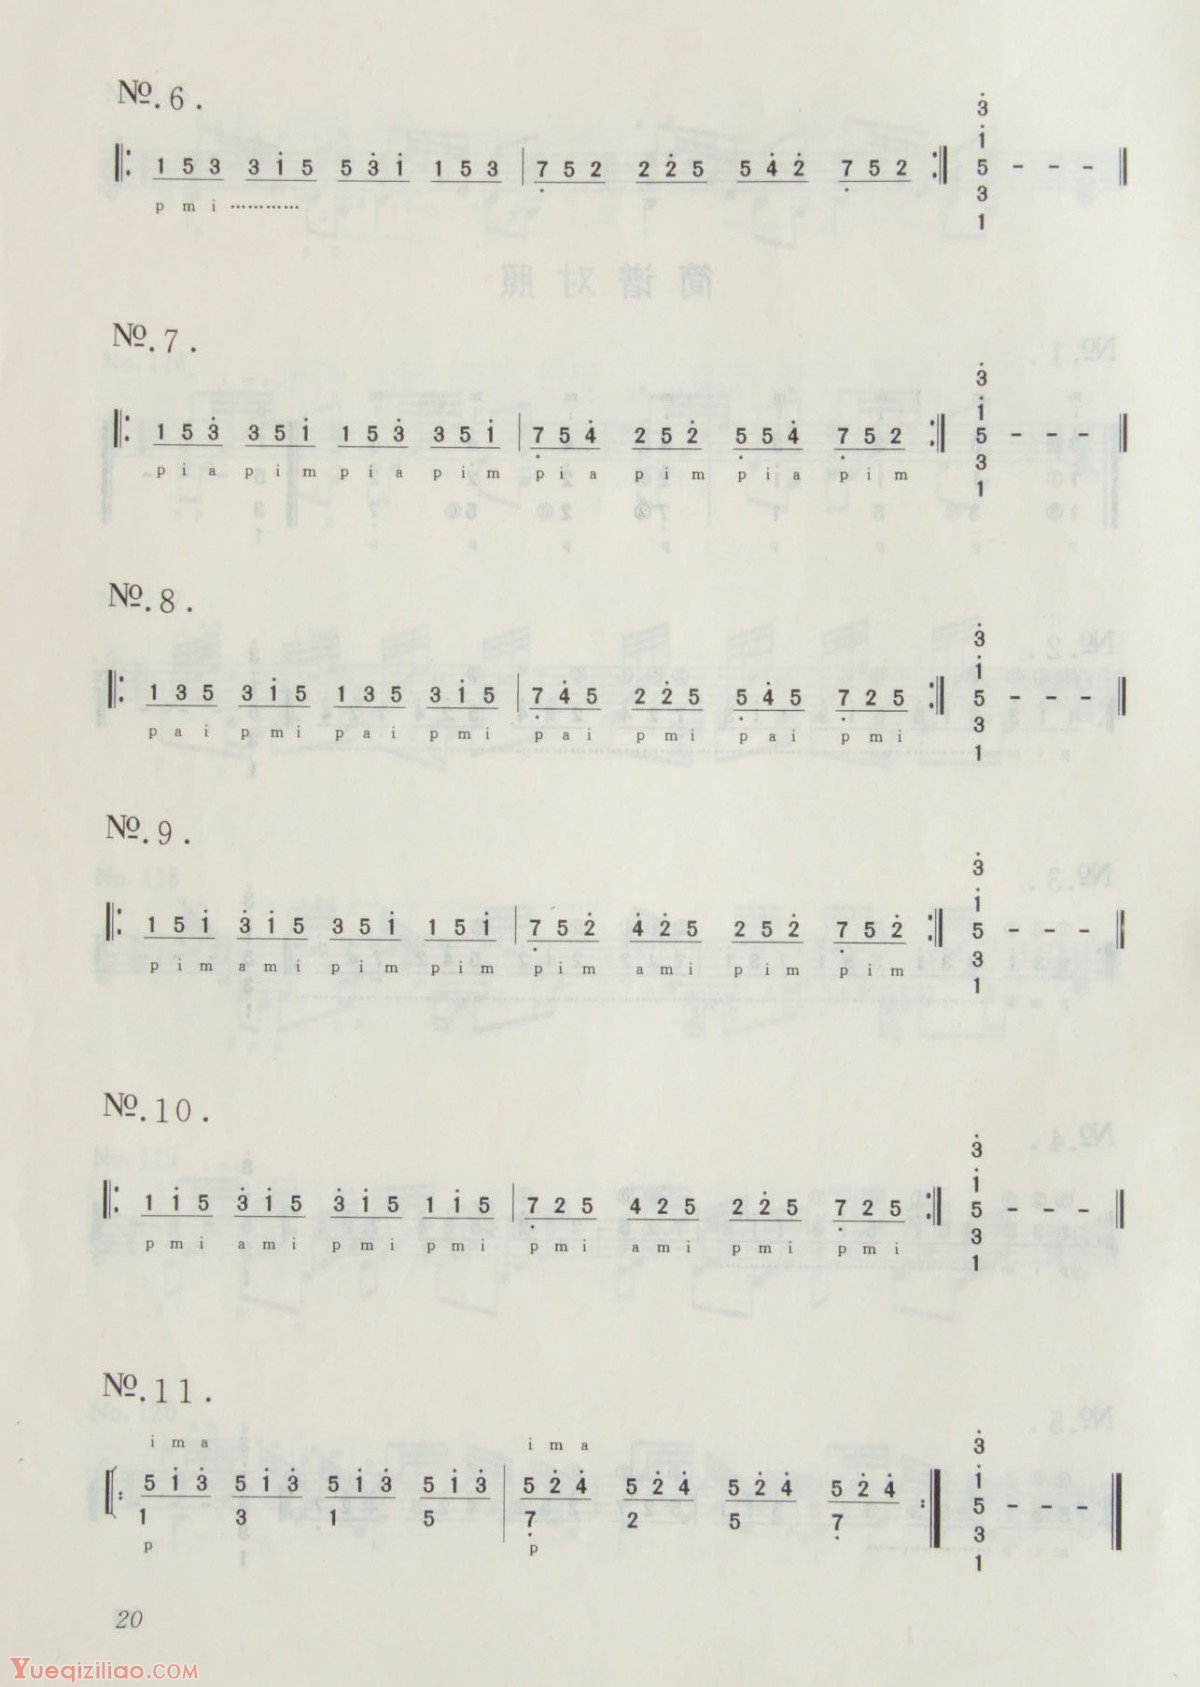 №.6.
3̇
1̇
𝄆 1 5 3 3 1̇ 5 5 3̇ 1̇ 1 5 3 | 7̣ 5 2 2 2̇ 5 5 4̇ 2̇ 7̣ 5 2 𝄇 5 - - - ‖
3
p m i …………
1
№.7.
3̇
1̇
𝄆 1 5 3̇ 3 5 1̇ 1 5 3̇ 3 5 1̇ | 7̣ 5 4̇ 2 5 2̇ 5̣ 5 4̇ 7̣ 5 2 𝄇 5 - - - ‖
3
p i a p i m p i a p i m p i a p i m p i a p i m
1
№.8.
3̇
1̇
𝄆 1 3 5 3 1̇ 5 1 3 5 3 1̇ 5 | 7̣ 4̇ 5 2 2̇ 5 5̣ 4̇ 5 7̣ 2 5 𝄇 5 - - - ‖
3
p a i p m i p a i p m i p a i p m i p a i p m i
1
№.9.
3̇
1̇
𝄆 1 5 1̇ 3̇ 1̇ 5 3 5 1̇ 1 5 1̇ | 7̣ 5 2̇ 4̇ 2̇ 5 2 5 2̇ 7̣ 5 2̇ 𝄇 5 - - - ‖
3
p i m a m i p i m p i m p i m a m i p i m p i m
1
№.10.
3̇
1̇
𝄆 1 1̇ 5 3̇ 1̇ 5 3̇ 1̇ 5 1 1̇ 5 | 7̣ 2 5 4 2 5 2 2̇ 5 7̣ 2 5 𝄇 5 - - - ‖
3
p m i a m i p m i p m i p m i a m i p m i p m i
1
№.11.
i m a i m a
3̇
1̇
𝄆 5 1̇ 3̇ 5 1̇ 3̇ 5 1̇ 3̇ 5 1̇ 3̇ | 5 2̇ 4̇ 5 2̇ 4̇ 5 2̇ 4̇ 5 2̇ 4̇ 𝄇 5 - - - ‖
1 3 1 5 7̣ 2 5 7̣ 3
p p
1
20
Yueqiziliao.COM